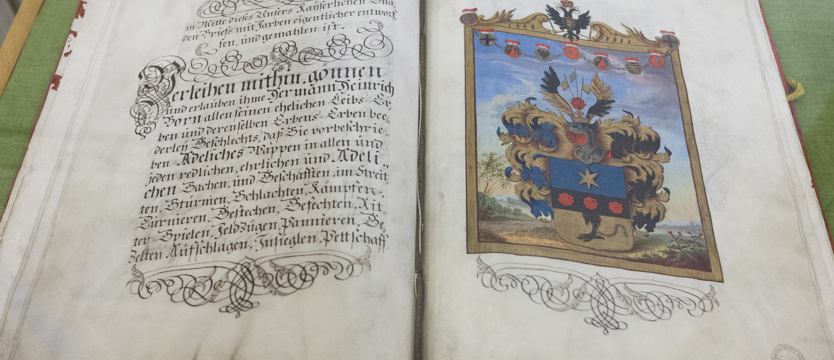 in Mitte dieses Unsers Kayserlichen
den Brieffs mit Farben eigentlicher entworf-
fen, und gemahlen ist.
Verleihen mithin, gönnen
und erlauben ihme Hermann Heinrich
allen seinen ehelichen Leibs Er-
ben und derenselben Erbens-Erben bee-
derley Geschlechts, daß Sie vorbeschrie-
ben Adeliches Wappen in allen und
jeden redlichen, ehrlichen und Adeli-
chen Sachen, und Geschäfften, im Streit
ten, Stürmen, Schlachten, Kämpfen,
Turnieren, Gestechen, Gefechten, Rit-
ter Spielen, Feldzügen, Pannieren, Ge-
zelten, Aufschlagen, Insieglen, Pettschaff